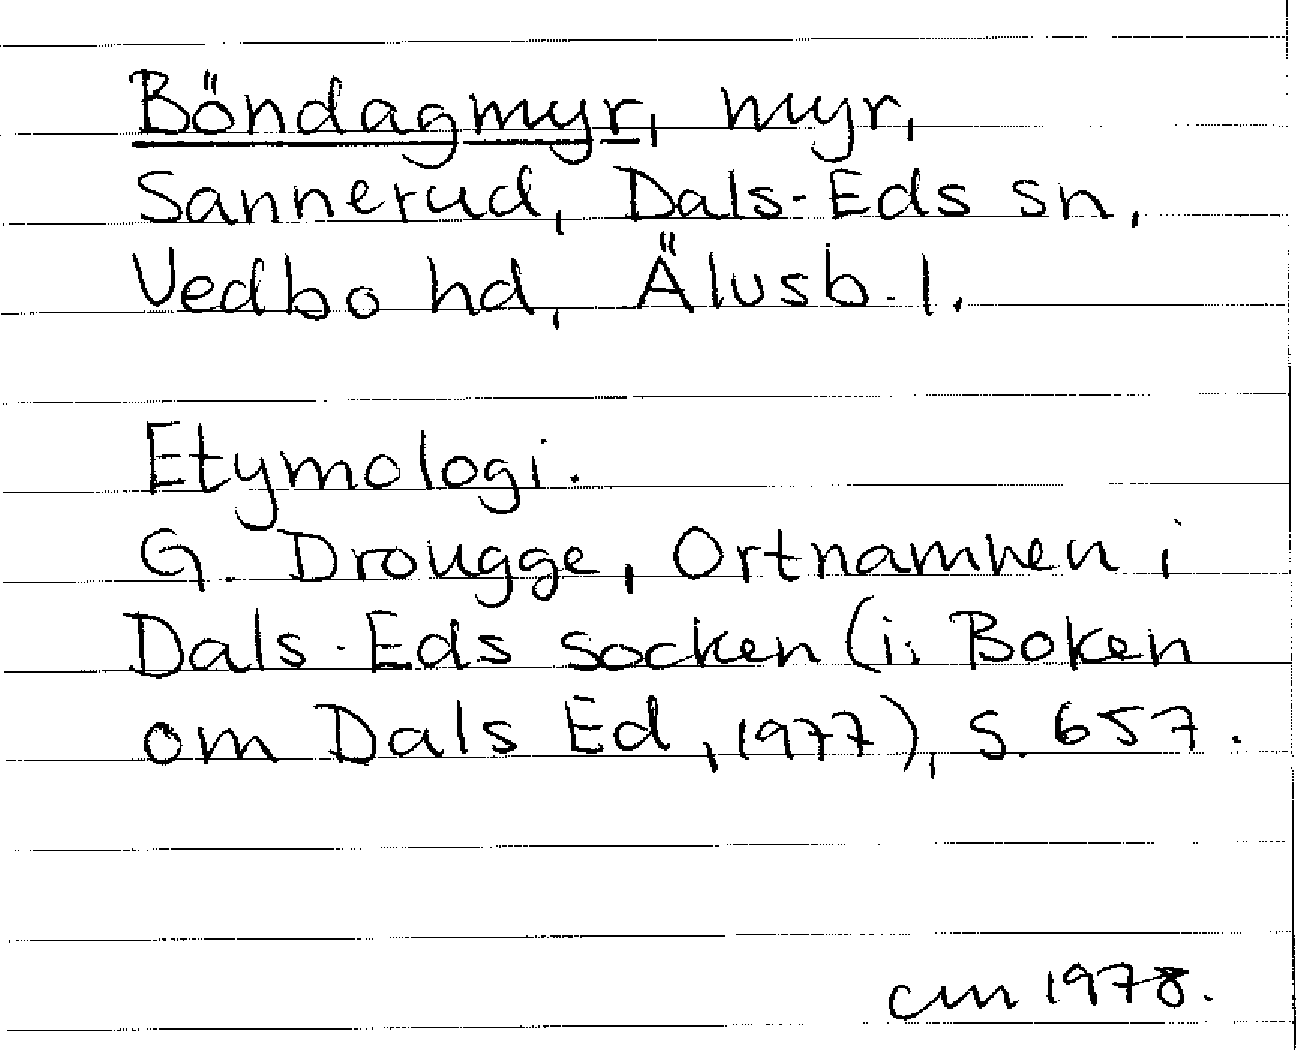 Böndagmyr, myr,
Sannerud, Dals-Eds sn,
Vedbo hd, Älvsb. l.
Etymologi.
G. Drougge, Ortnamnen i
Dals-Eds socken (i: Boken
om Dals Ed, 1977), s. 657.
cm 1978.